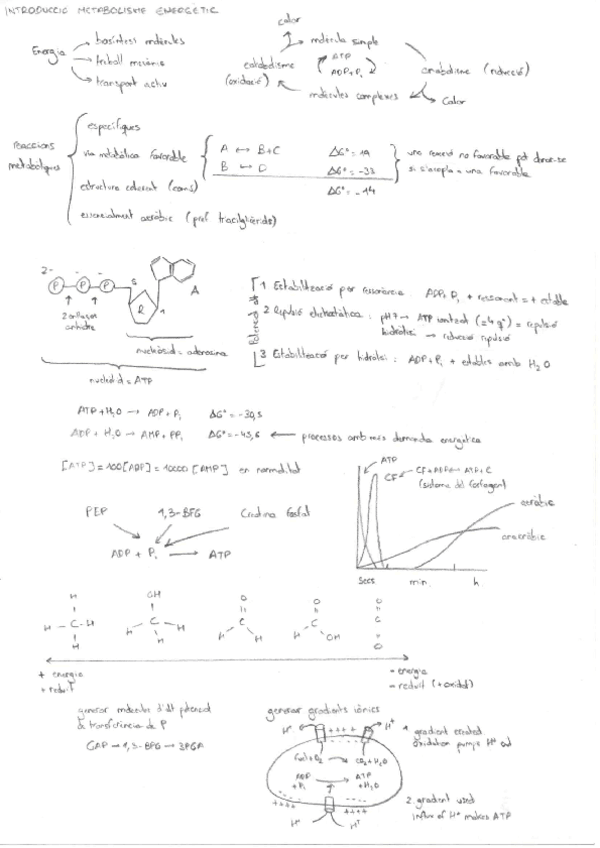 INTRODUCCIÓ METABOLISME ENERGÈTIC
Energia
biosíntesi molècules
treball mecànic
transport actiu
calor
molècula simple
catabolisme
(oxidació)
ATP
ADP+Pi
anabolisme (reducció)
molècules complexes
Calor
reaccions
metabòliques
específiques
via metabòlica favorable
estructura coherent (cons)
essencialment aeròbic (pref triacilglicèrids)
A ↔ B+C ΔG° = 19
B ↔ D ΔG° = -33
ΔG° = -14
una reacció no favorable pot donar-se
si s'acopla a una favorable
2- - -
P P P 5 R 1 A
2 enllaços
anhidre
nucleòsid = adenosina
nucleòtid = ATP
1 Estabilització per ressonància: ADP, Pi + ressonant = + estable
2 Repulsió electrostàtica: pH 7 → ATP ionitzat (≈4 q-) = repulsió
hidròlisi → reducció repulsió
3 Estabilització per hidròlisi: ADP+Pi + estables amb H2O
ATP + H2O → ADP + Pi ΔG° = -30,5
ADP + H2O → AMP + PPi ΔG° = -45,6 ← processos amb més demanda energètica
[ATP] = 10[ADP] = 1000 [AMP] en normalitat
ATP
CF
CF + ADP ↔ ATP + C
(sistema del fosfagen)
aeròbic
anaeròbic
Secs min. h.
PEP 1,3-BFG Creatina fosfat
ADP + Pi → ATP
H OH O O O
H - C - H C H C C C
H H H H H OH O
+ energia
+ reduït
- energia
- reduït (+ oxidat)
generar molècules d'alt potencial
de transferència de P
GAP → 1,3-BFG → 3PGA
generar gradients iònics
H+ ++++ H+
Fuel + O2 CO2 + H2O
ADP
+ Pi
ATP
+ H2O
++++ ++++
H+ H+
1. gradient created
oxidation pumps H+ out
2. gradient used
influx of H+ makes ATP